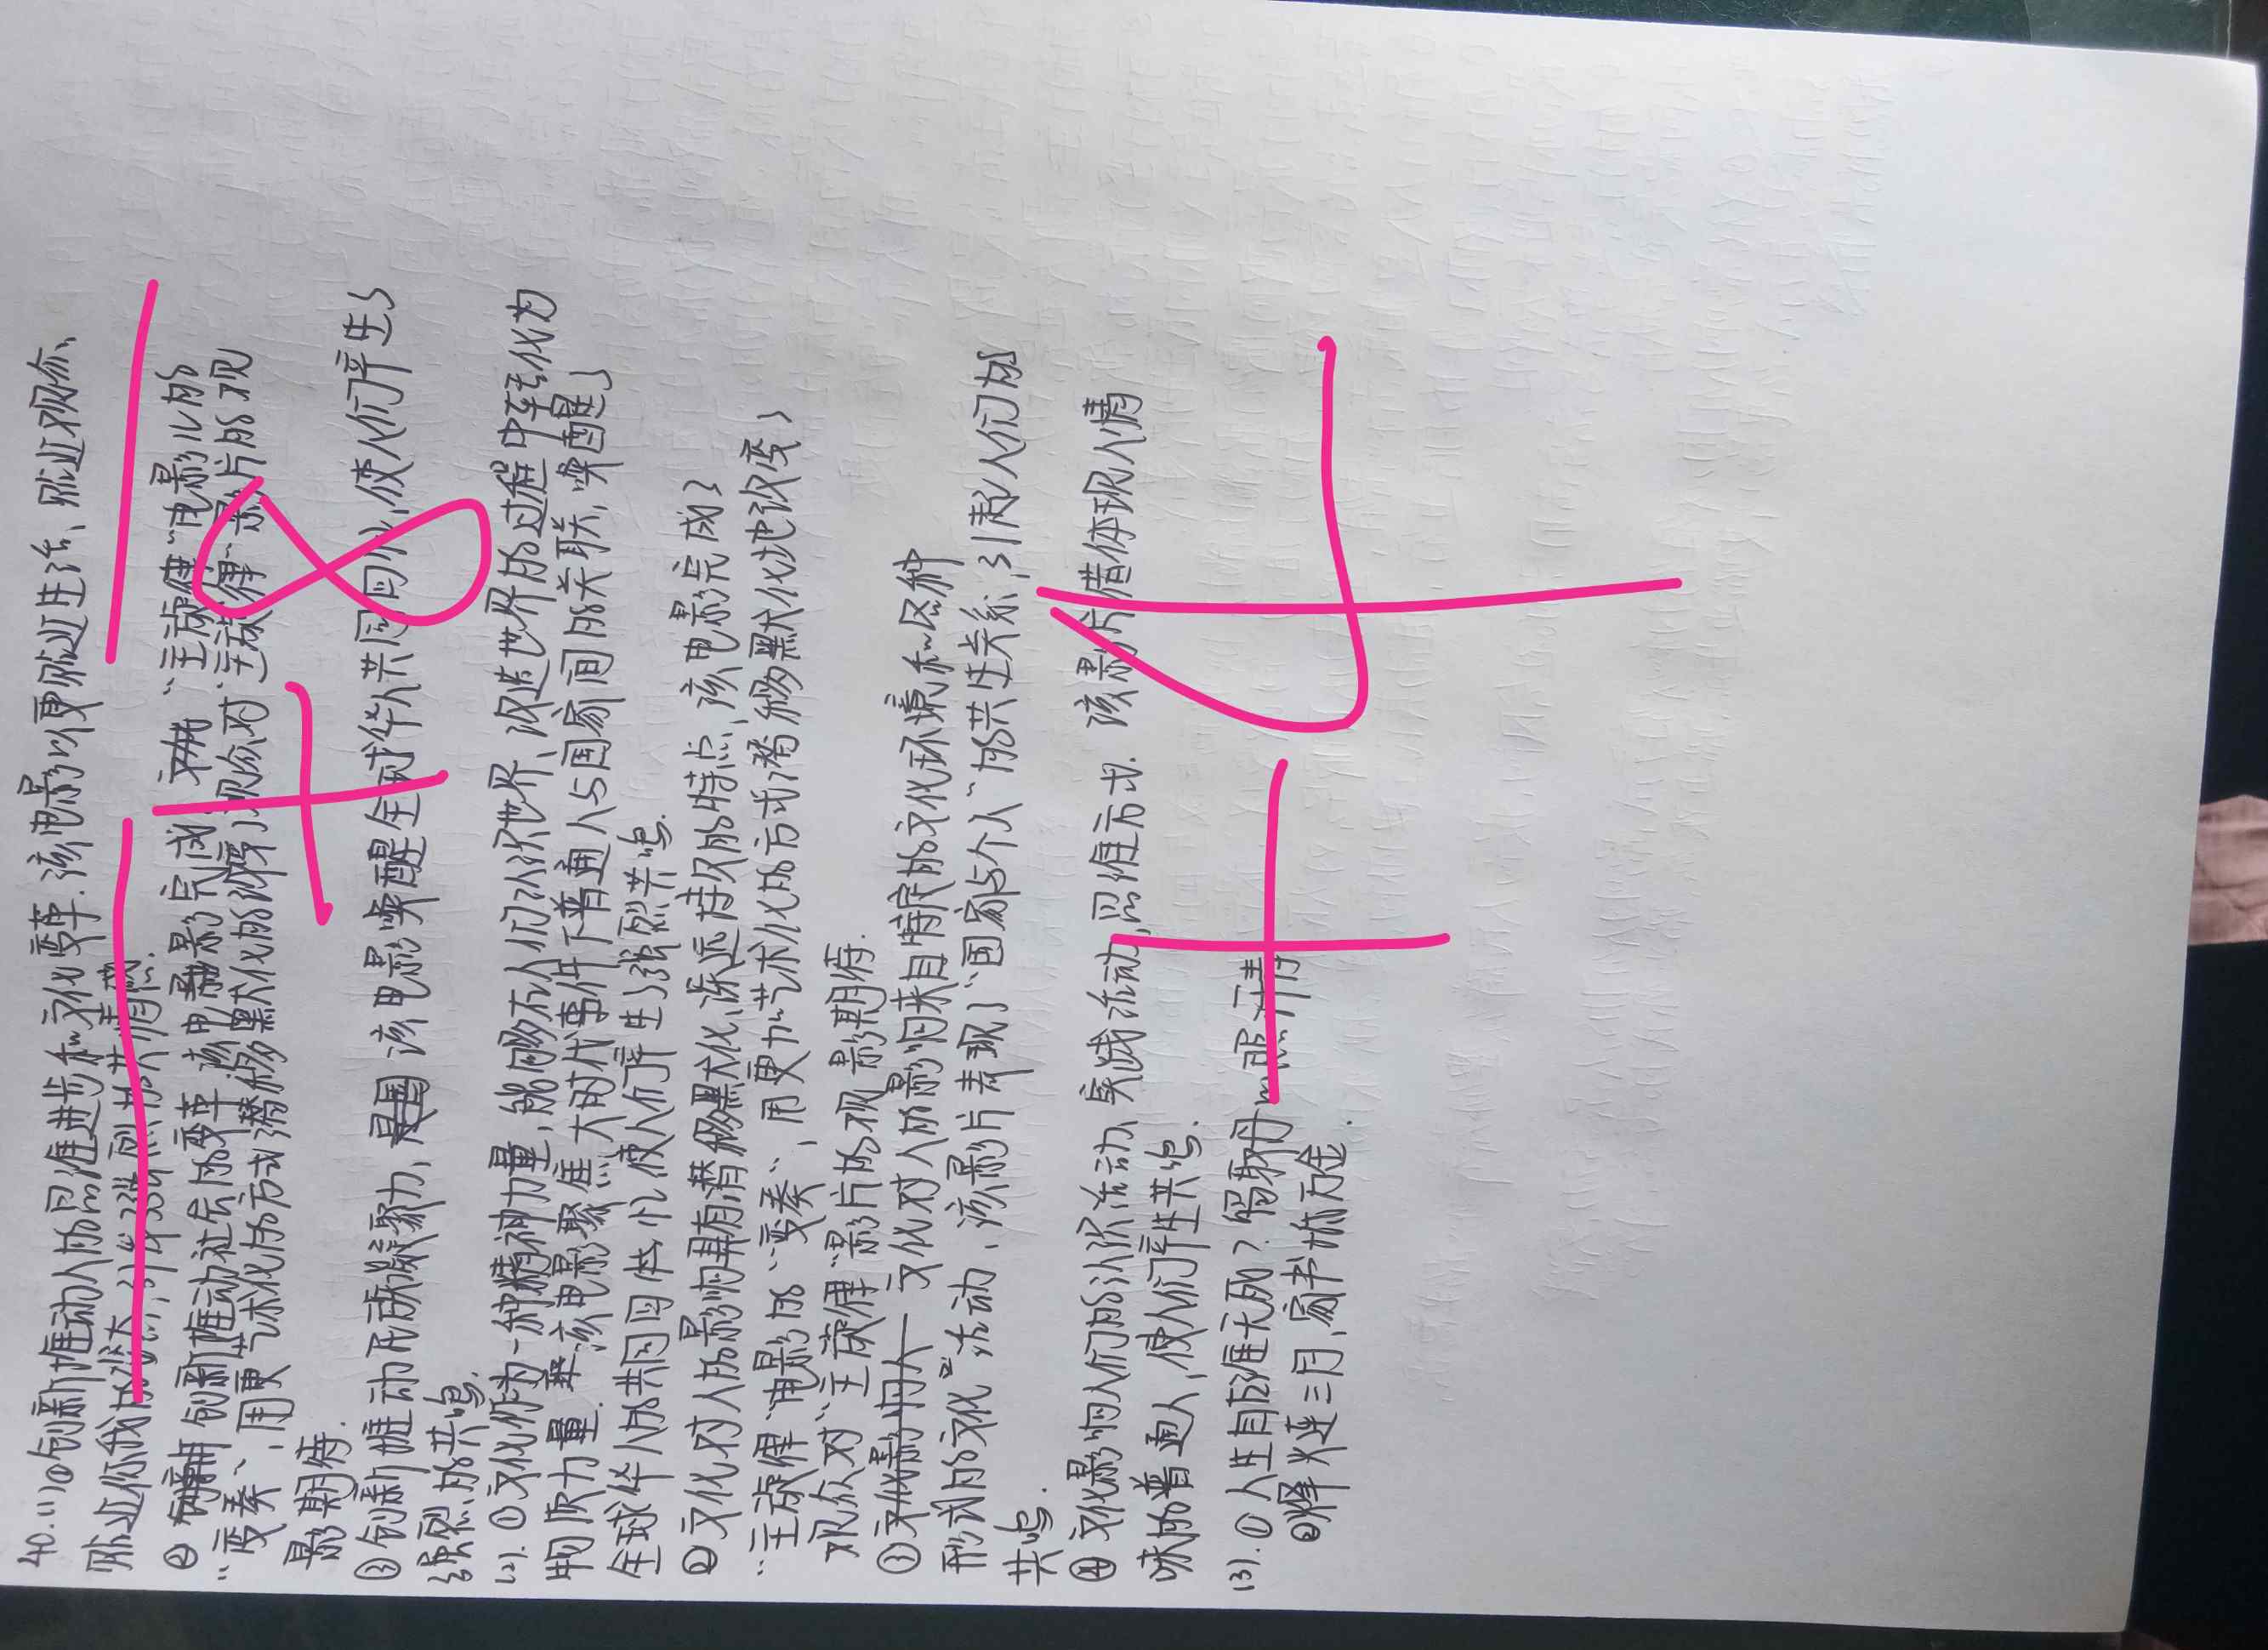 40.(1)①创新推动人的思维进步和文化变革.该电影以更贴近生活、贴近观众、
贴近你我的姿态,引华强烈的共情感.
② 创新推动社会的变革 该电影完成 "主旋律"电影的
"变奏",用更艺术化的方式潜移默化的改变了观众对"主旋律"影片的观
影期待.
③创新推动民族凝聚力,该电影唤醒全球华人共同回忆,使人们产生了
强烈的共鸣.
(2).①文化作为一种精神力量,能够在人们认识世界、改造世界的过程中转化为
物质力量.该电影聚焦大时代事件下普通人与国家间的关联,唤醒了
全球华人的共同回忆,使人们产生了强烈共鸣.
②文化对人的影响具有潜移默化、深远持久的特点、该电影完成了
"主旋律"电影的"变奏",用更加艺术化的方式潜移默化地改变了
观众对"主旋律"影片的观影期待.
③文化对人的影响来自特定的文化环境和各种
形式的文化活动、该影片表现了"国家与个人"的共生关系、引起人们的
共鸣.
④文化影响人们的认识活动、实践活动,思维方式.该影片借体现人情
味的普通人,使人们产生共鸣.
(3).①人生自古谁无死?留取丹心照汗青
②烽火连三月,家书抵万金.